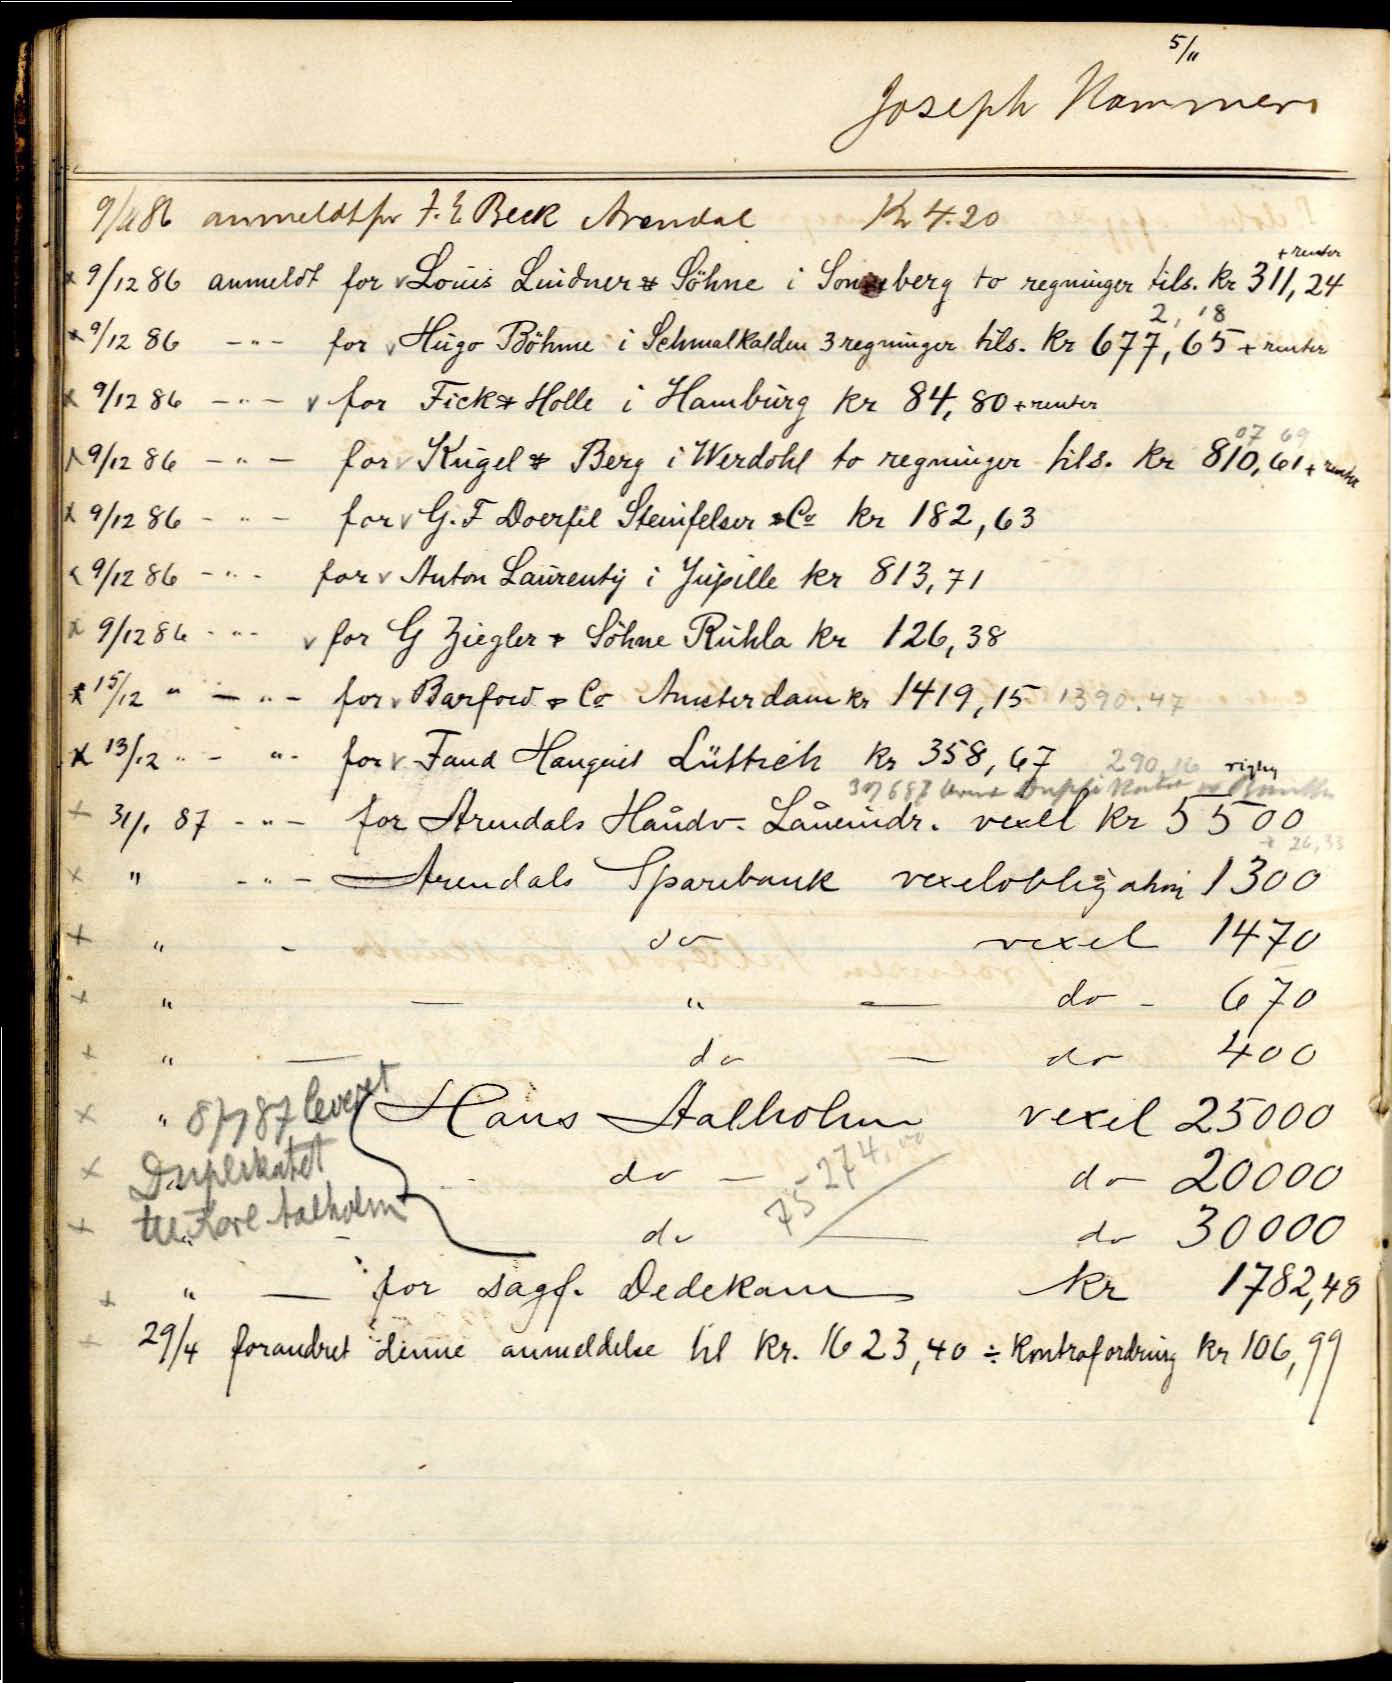 5/11
Joseph Hammer
9/11 86 anmeldt for F. E Beck Arendal Kr 4.20
+ renter
x 9/12 86 anmeldt for v Louis Lindner & Söhne i Sonneberg to regninger tils. kr 311,24
2, 18
x 9/12 86 -"- for v Hugo Böhme i Schmalkalden 3 regninger tils. kr 677,65 + renter
x 9/12 86 -"- v for Fick & Holle i Hamburg kr 84,80 + renter
07 69
x 9/12 86 -"- for v Kugel & Berg i Werdohl to regninger tils. kr 810,61 + renter
x 9/12 86 -"- for v G. F Doerfel Steinfelser & Co kr 182,63
x 9/12 86 -"- for v Anton Laurenty i Jupille kr 813,71
x 9/12 86 -"- v for G Ziegler & Söhne Ruhla kr 126,38
x 15/12 " -"- for v Barfow & Co Amsterdam kr 1419,15 1390.47
x 13/12 " -"- for v Fand Hanquet Lüttich kr 358,67 290,16
x 31/1 87 -"- for Arendals Håndv. Låneindr. vexel kr 5500
+ 26,33
x " -"- Arendals Sparebank vexelobligation 1300
x " - do vexel 1470
x " — " — do - 670
x " — do — do 400
x " 8/7 87 leveret Hans Aalholm vexel 25000
x Duplikatet do — do 20000
75274,00
x til Karl Aalholm do — do 30000
x " — for sagf. Dedekam kr 1782,48
x 29/4 forandret denne anmeldelse til kr. 1623,40 ÷ kontrafordring kr 106,99